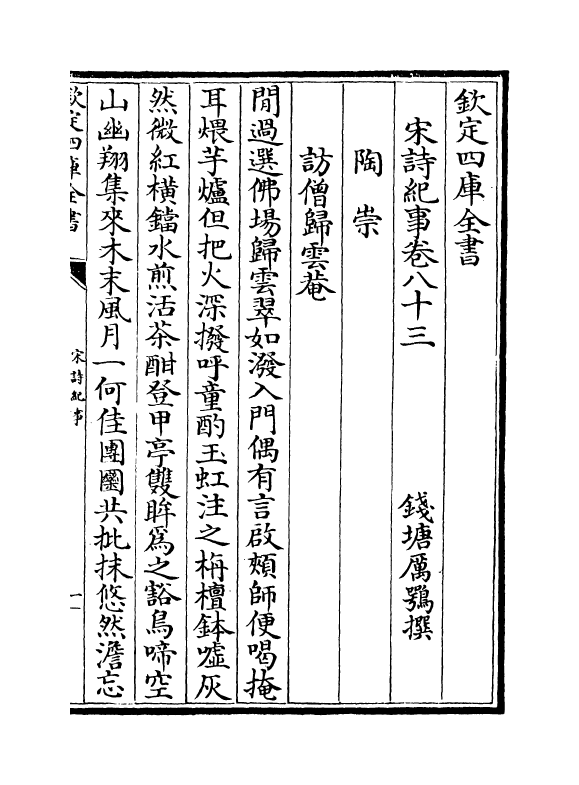 欽定四庫全書
宋詩紀事卷八十三
錢塘厲鶚撰
陶崇
訪僧歸雲菴
閒過選佛場歸雲翠如潑入門偶有言啟頰師便喝掩
耳煨芋爐但把火深撥呼童酌玉虹注之栴檀鉢噓灰
然微紅橫鐺水煎活茶酣登甲亭雙眸為之豁鳥啼空
山幽翔集來木末風月一何佳團圞共批抹悠然澹忘
欽定四庫全書
宋詩紀事
一